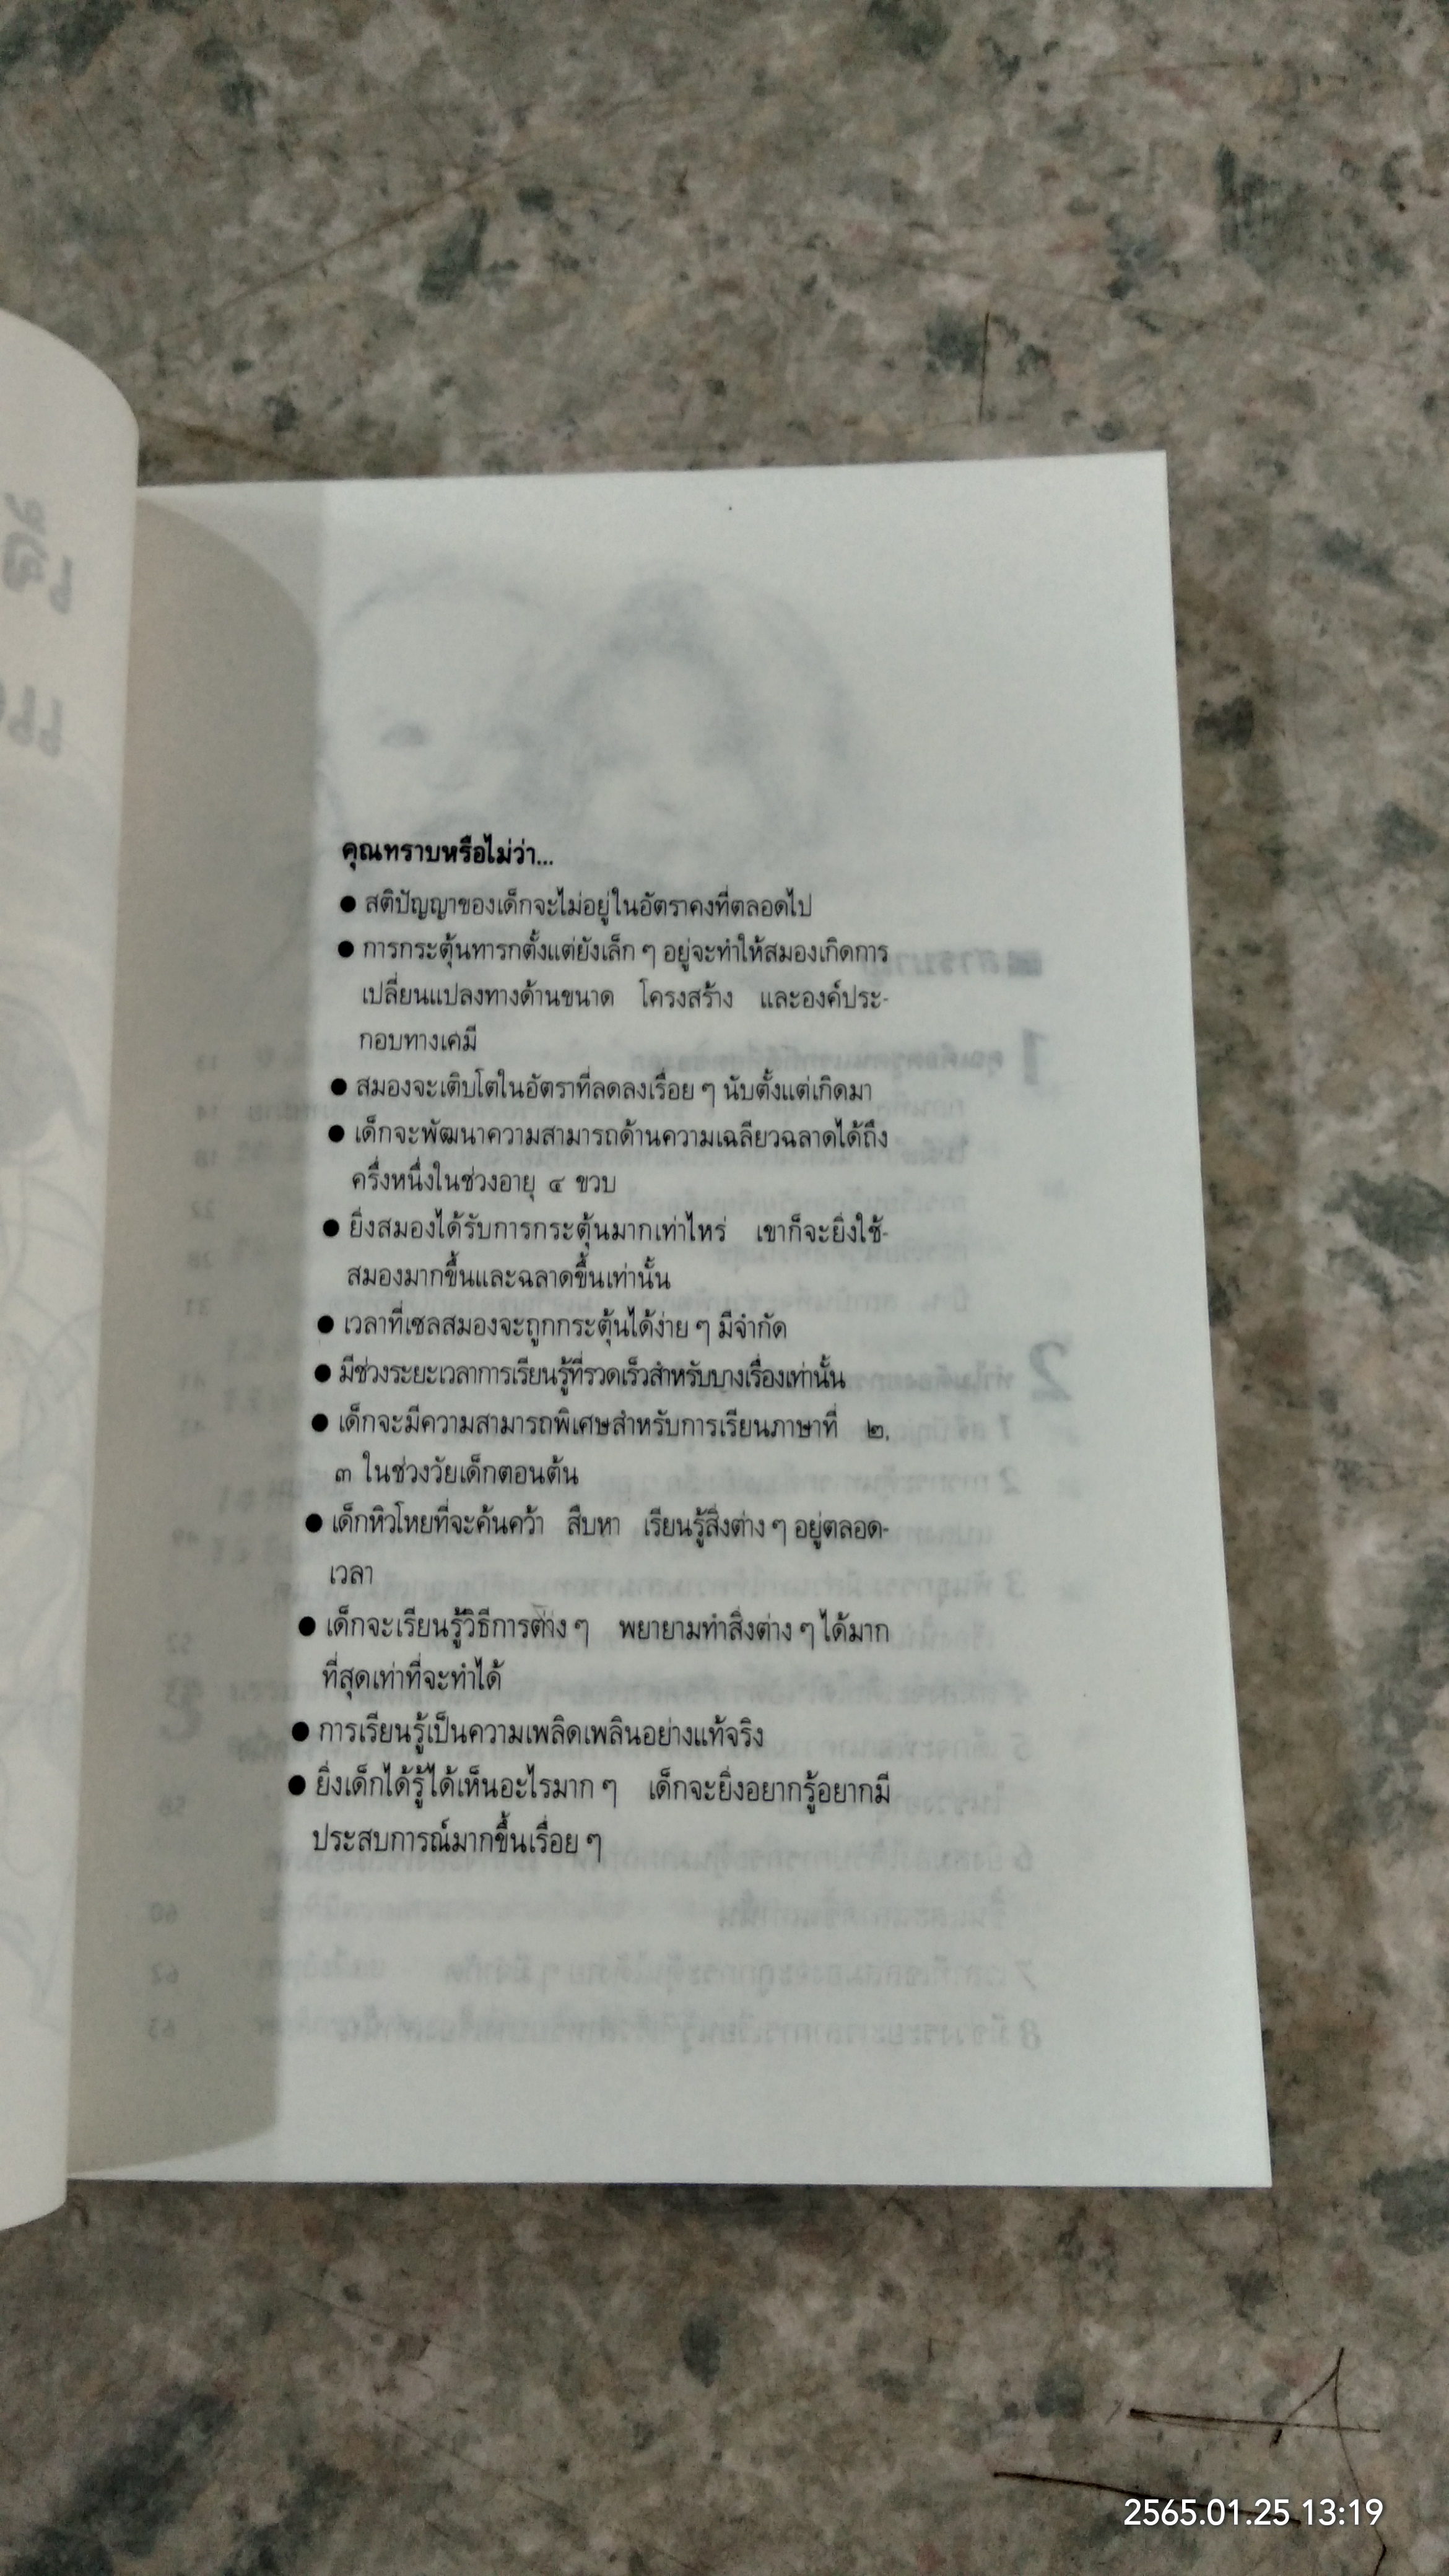 คุณทราบหรือไม่ว่า...
● สติปัญญาของเด็กจะไม่อยู่ในอัตราคงที่ตลอดไป
● การกระตุ้นทารกตั้งแต่ยังเล็ก ๆ อยู่จะทำให้สมองเกิดการ
เปลี่ยนแปลงทางด้านขนาด โครงสร้าง และองค์ประ-
กอบทางเคมี
● สมองจะเติบโตในอัตราที่ลดลงเรื่อย ๆ นับตั้งแต่เกิดมา
● เด็กจะพัฒนาความสามารถด้านความเฉลียวฉลาดได้ถึง
ครึ่งหนึ่งในช่วงอายุ ๔ ขวบ
● ยิ่งสมองได้รับการกระตุ้นมากเท่าไหร่ เขาก็จะยิ่งใช้-
สมองมากขึ้นและฉลาดขึ้นเท่านั้น
● เวลาที่เซลสมองจะถูกกระตุ้นได้ง่าย ๆ มีจำกัด
● มีช่วงระยะเวลาการเรียนรู้ที่รวดเร็วสำหรับบางเรื่องเท่านั้น
● เด็กจะมีความสามารถพิเศษสำหรับการเรียนภาษาที่ ๒,
๓ ในช่วงวัยเด็กตอนต้น
● เด็กหิวโหยที่จะค้นคว้า สืบหา เรียนรู้สิ่งต่าง ๆ อยู่ตลอด-
เวลา
● เด็กจะเรียนรู้วิธีการต่าง ๆ พยายามทำสิ่งต่าง ๆ ได้มาก
ที่สุดเท่าที่จะทำได้
● การเรียนรู้เป็นความเพลิดเพลินอย่างแท้จริง
● ยิ่งเด็กได้รู้ได้เห็นอะไรมาก ๆ เด็กจะยิ่งอยากรู้อยากมี
ประสบการณ์มากขึ้นเรื่อย ๆ
2565.01.25 13:19